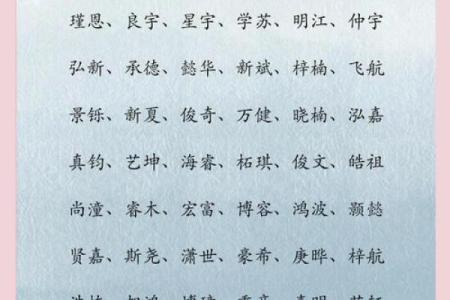 瑾恩、良宇、星宇、学苏、明江、仲宇
弘新、承德、懿华、新斌、梓楠、飞航
景铄、新夏、俊奇、万健、晓楠、泓嘉
真钧、艺坤、海睿、柘琪、俊文、皓祖
尚潼、睿木、宏富、博容、鸿波、颢懿
贤嘉、斯尧、潇世、豪希、庚晔、梓航